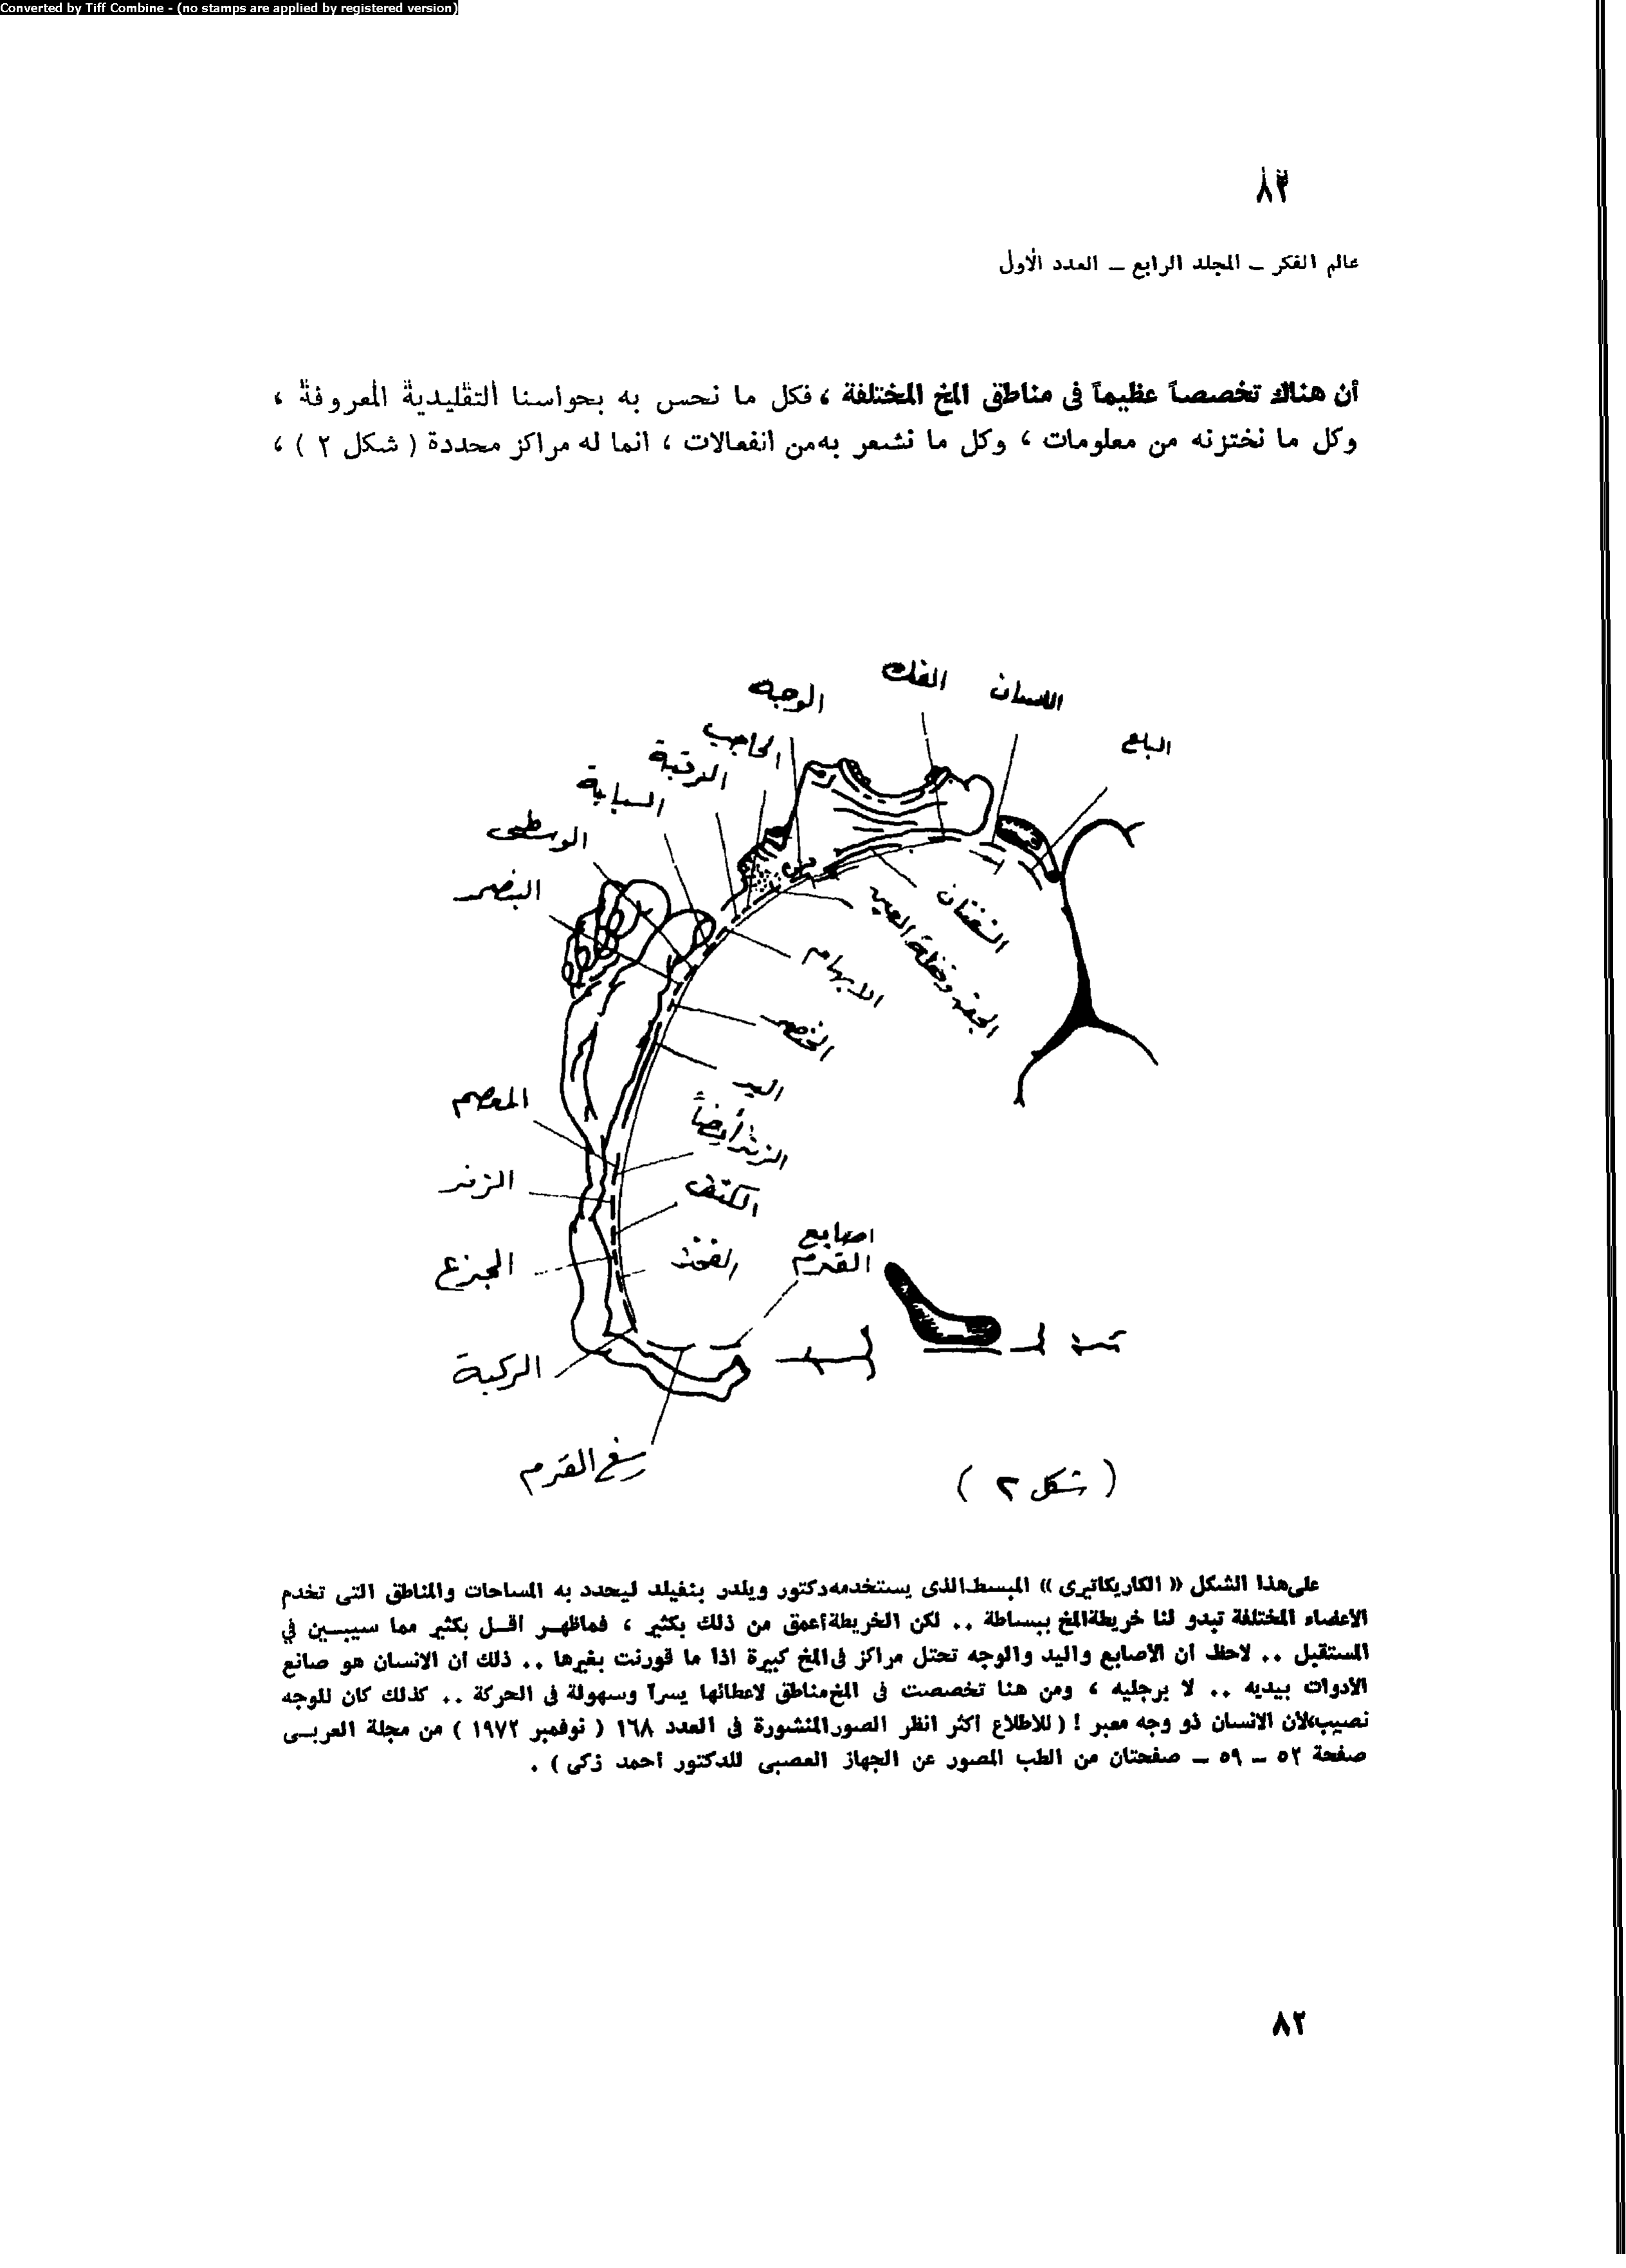 Converted by Tiff Combine - (no stamps are applied by registered version)
٨٢
عالم الفكر – المجلد الرابع – العدد الأول
أن هناك تخصصاً عظيماً فى مناطق المخ المختلفة ، فكل ما نحس به بحواسنا التقليدية المعروفة ،
وكل ما نختزنه من معلومات ، وكل ما نشعر به من انفعالات ، انما له مراكز محددة ( شكل ٢ ) ،
البلع
اللسان
الفك
الوجه
الحاجب
الرقبة
السبابة
الوسطى
البنصر
الشفتان
الجفن ومقلة العين
الابهام
الخنصر
اليد
المعصم
الزند أيضاً
الزند
الكتف
الجزع
الفخذ
اصابع
القدم
الركبة
رسغ القدم
( شكل ٢ )
على هذا الشكل « الكاريكاتيرى » المبسط الذى يستخدمه دكتور ويلدر بنفيلد ليحدد به المساحات والمناطق التى تخدم
الاعضاء المختلفة تبدو لنا خريطة المخ ببساطة .. لكن الخريطة أعمق من ذلك بكثير ، فماظهر اقل بكثير مما سيبين في
المستقبل .. لاحظ أن الأصابع واليد والوجه تحتل مراكز فى المخ كبيرة اذا ما قورنت بغيرها .. ذلك ان الانسان هو صانع
الأدوات بيديه .. لا برجليه ، ومن هنا تخصصت فى المخ مناطق لاعطائها يسرآ وسهولة فى الحركة .. كذلك كان للوجه
نصيب،لأن الانسان ذو وجه معبر ! ( للاطلاع اكثر انظر الصور المنشورة فى العدد ١٦٨ ( نوفمبر ١٩٧٢ ) من مجلة العربى
صفحة ٥٢ – ٥٩ – صفحتان من الطب المصور عن الجهاز العصبى للدكتور احمد زكى ) .
٨٢